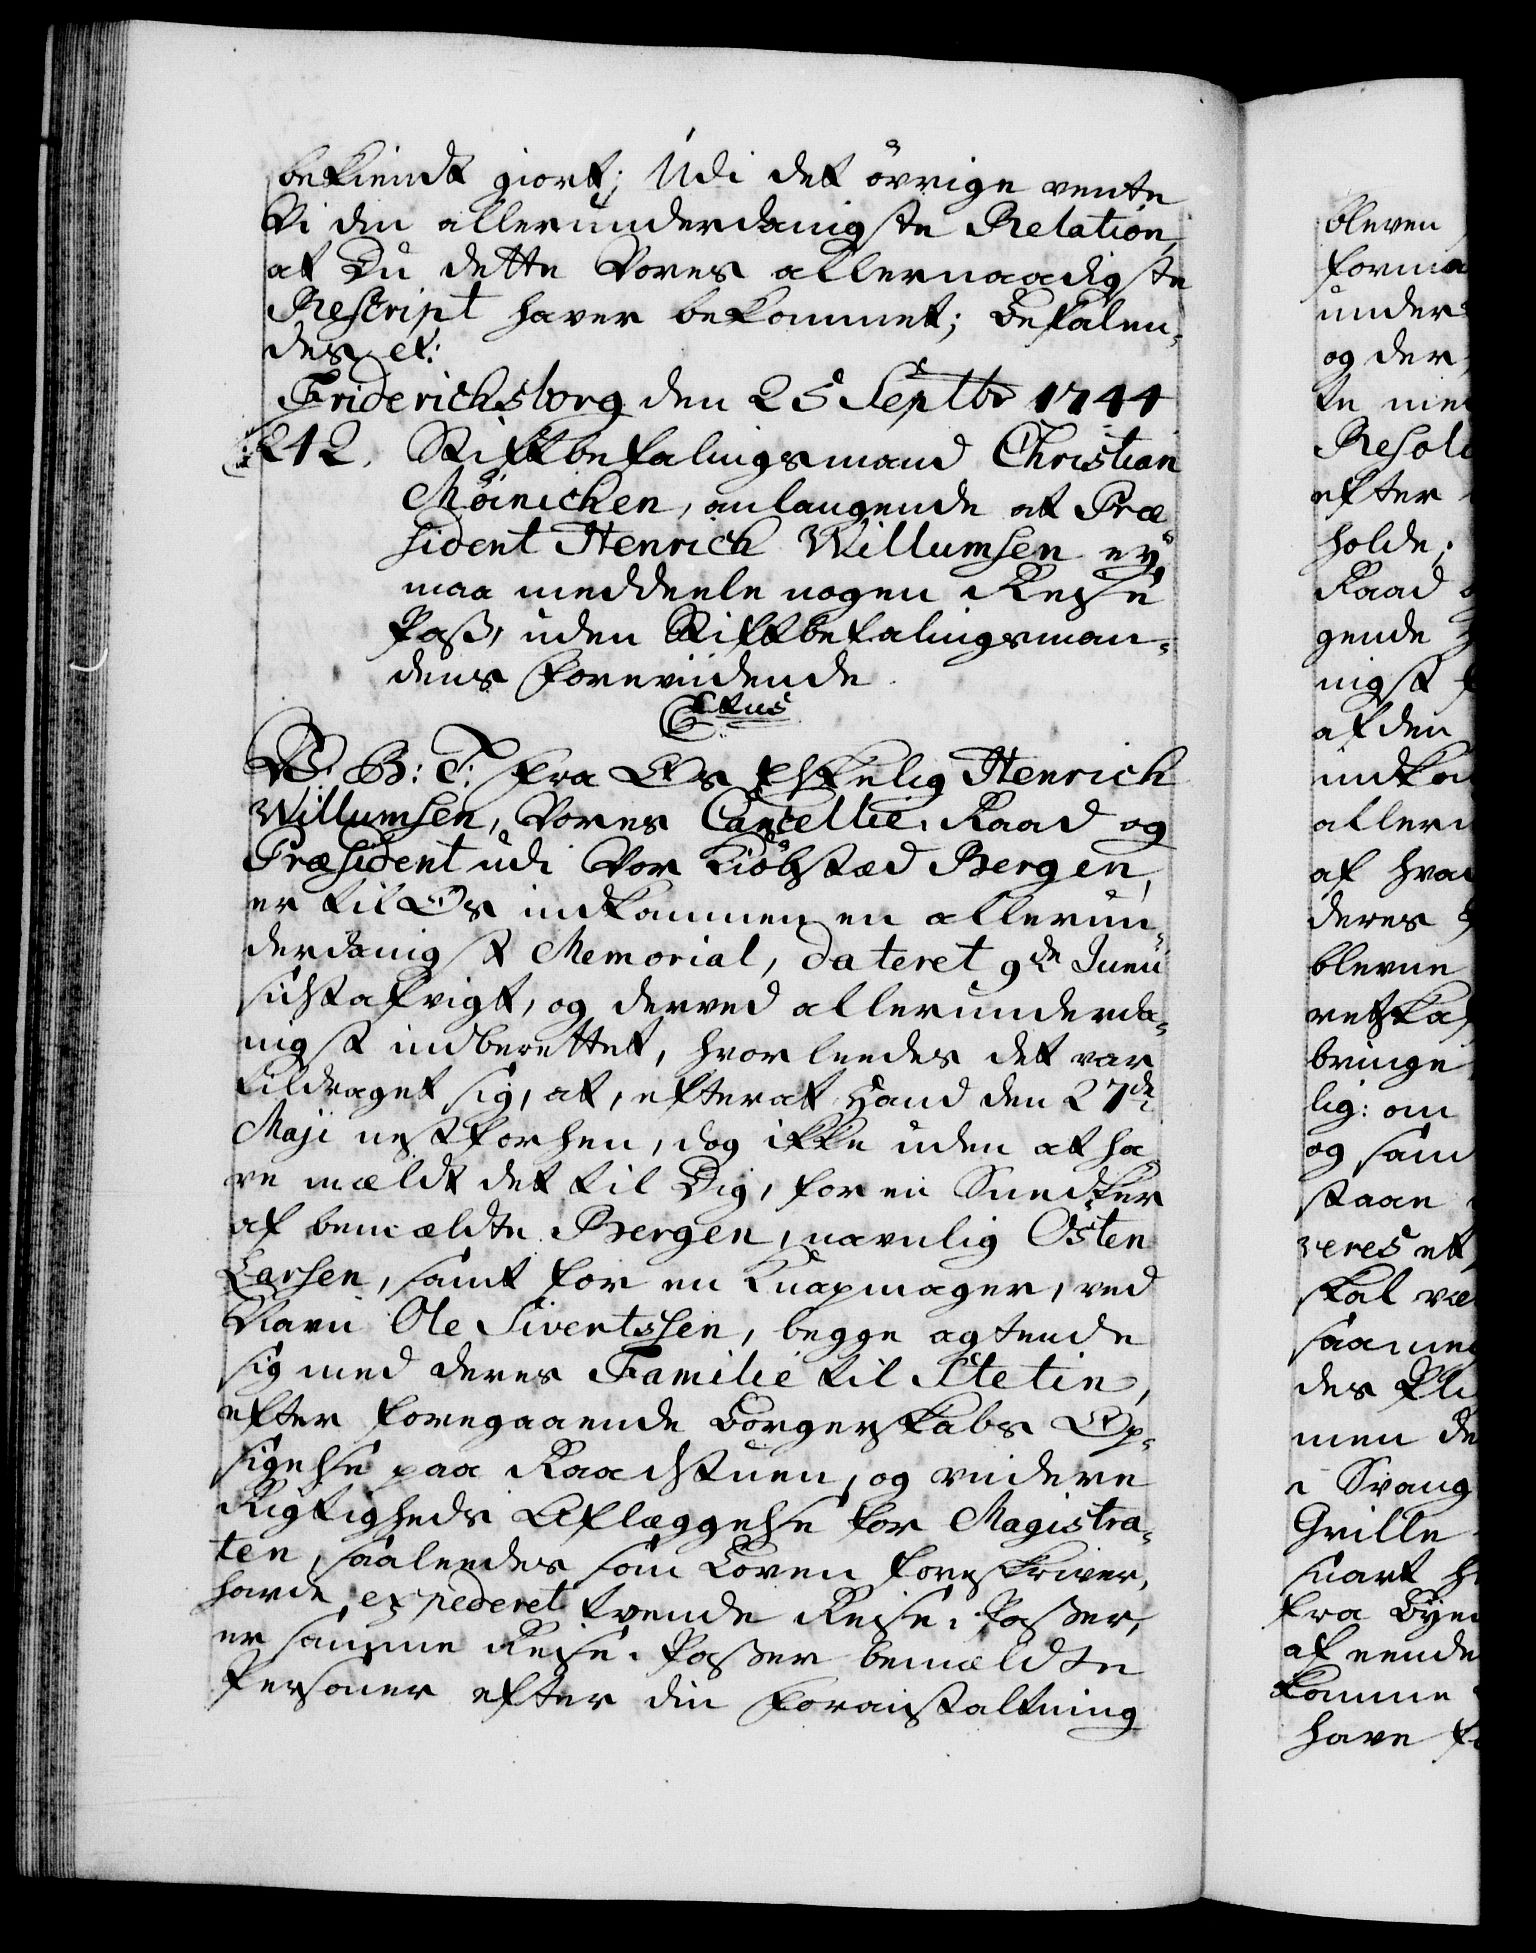 bekiendt giort; Udi det övrige vente
Vi din allerunderdanigste Relation,
at Du dette Vores allernaadigste
Rescript haver bekommet; Befalen-
des et:
Friderichsborg den 25 Septbr 1744
212. Stiftbefalingsmand Christian
Möinichen, anlangende at Præ-
sident Henrich Willumsen ey
maa meddeele nogen Reise
Pass, uden Stiftbefalingsman-
dens Forevidende.
V. G: T: Fra Os Elskelig Henrich
Willumsen, Vores Cancellie-Raad og
Præsident udi Vor Kiöbstæd Bergen,
er til Os indkommen en allerun-
derdanigst Memorial, dateret 9de Junii
sidstafvigt, og derved allerunderda-
nigst indberettet, hvorleedes det var
tildraget sig, at, efterat Hand den 27de
Maji nestforhen, dog ikke uden at ha-
ve meldt det til Dig, for en Snedker
af bemældte Bergen, navnlig Østen
Larsen, samt for en Knapmager, ved
Navn Ole Sivertssen, begge agtende
sig med deres Familie til Stetin,
efter foregaaende Borgerskabs Op-
sigelse paa Raadstuen, og videre
Rigtigheds Aflæggelse for Magistra-
ten, saaleedes som Loven foreskriver,
havde expederet tvende Reise-Passer,
er samme Reise-Passer bemældte
Personer efter din Foranstaltning
bleven
forme
under
og der
te me
Resol
efter
holde;
Raad
gende
nigst
af den
indko
aller
af hva
deres
blevne
retska
bringe
lig: om
og sam
staae
veres et
skal væ
saame
des
men de
i Svang
Grille
snart
fra Bye
af eende
komme
have